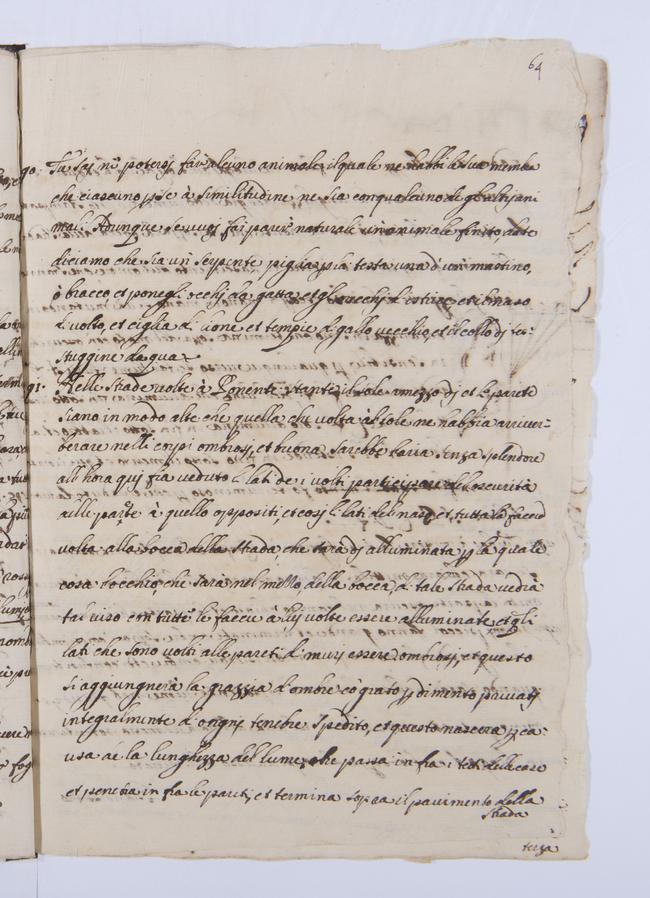 64
90. Tu sai nõ potersj far alcuno animale il quale nõ habbi le sua membra
che ciascuno p se à similitudine nõ sia con qualcuno de gl'altrj ani
mali. Adunque se vuoj far parer naturale un animale finto, dato
diciamo che sia un serpente piglia p la testa una d'un mastino,
ò bracco, et ponegli occhj da gatta, et gl'orecchj d'istrice, et il naso
di volto, et ciglia di lione et tempie di gallo vecchio, et il collo dj tes-
tuggine da qua
91. Nelle strade volte à Ponente stante il sole a mezzo dj et le pareti
siano in modo alte che quella che volta al sole nõ habbia a river-
berare nelli corpi ombrosj, et buona sarebbe l'aria senza splendore
all'hora fia veduto li lati de i volti participare del oscurità
delle à quello oppositi, et cosj li lati del naso, et tutta la faccia
volta alla bocca della strada, che sarà dj alluminata p la quale
cosa l'occhio, che sara nel mezzo della bocca di tale strada vedrà
tal viso con tutte le faccie à luj volte essere alluminate, et gli
lati che sono volti alle pareti de murj essere ombrosj, et questo
si aggiungnerà la grazzia d'ombre cõ grato pdimento privatj
integralmente d'ognj tenebre spedito, et questo nascera p ca-
usa de la lunghezza del lume, che passa infra i teti delle case
et penetra infra le paretj, et termina sopra il pavimento della
strada
terza